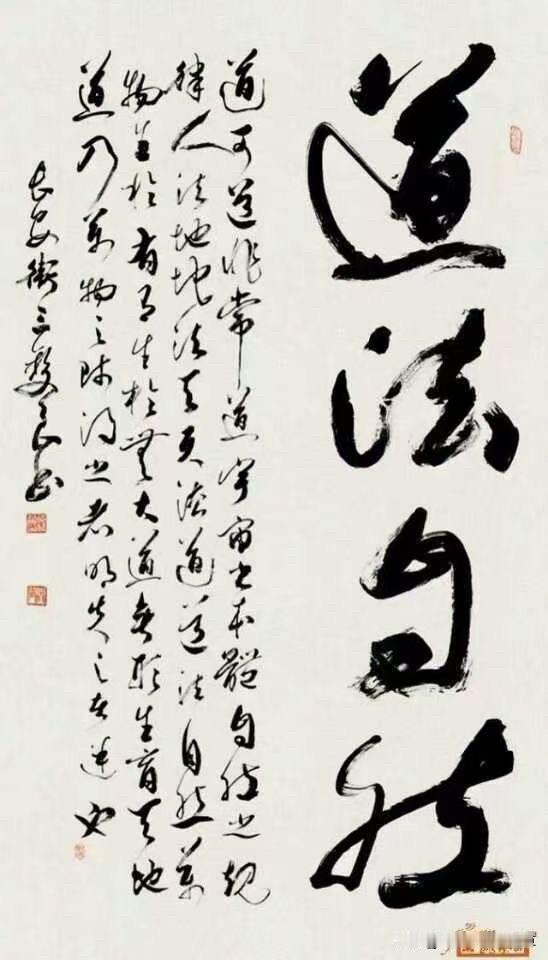 道法自然
道可道非常道宇宙之本體自然之規
律人法地地法天天法道道法自然萬
物生於有有生於無大道無形生育天地
道乃萬物之師得之者明失之者迷也
長安街三發良書